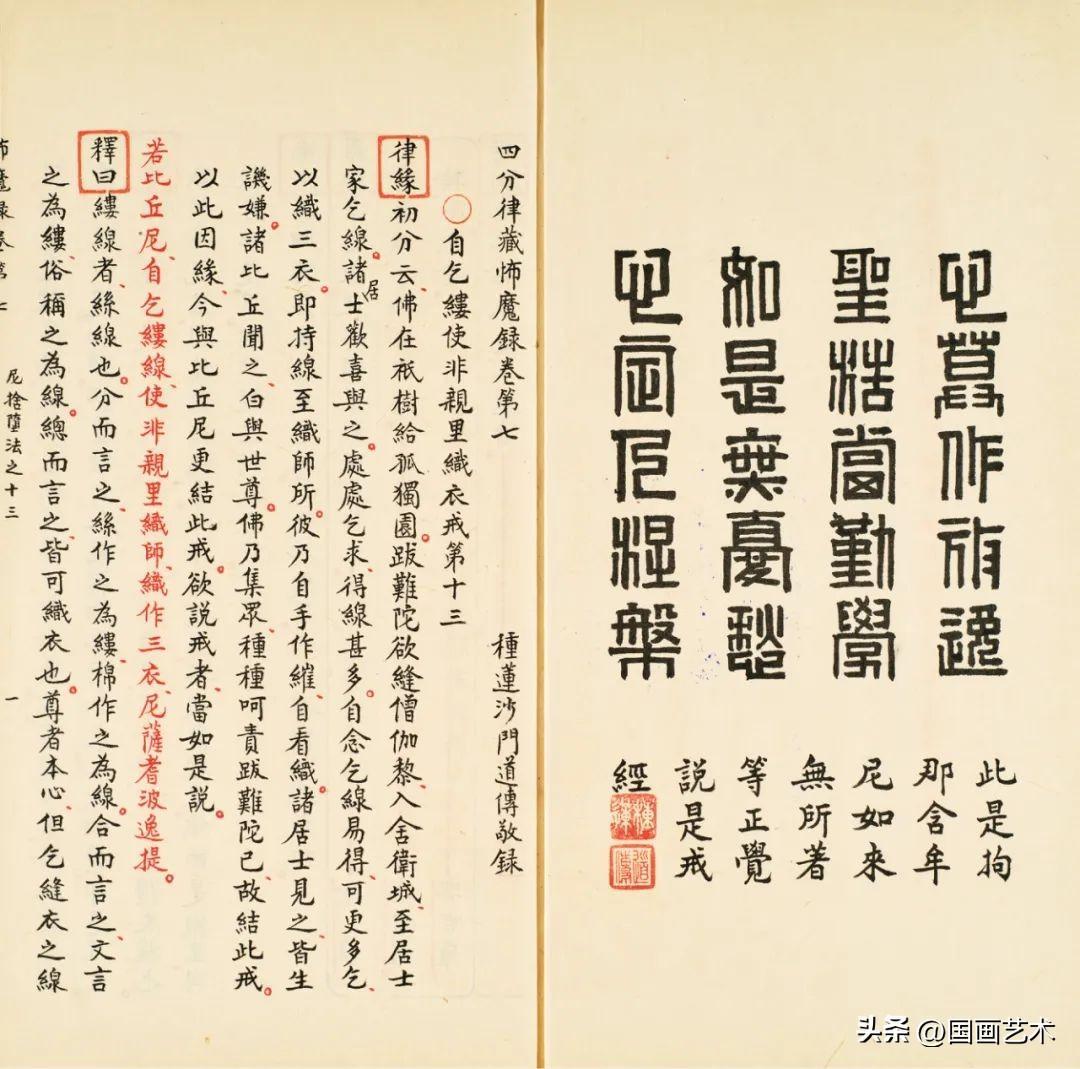 心莫作放逸
聖法當勤學
如是無憂愁
心定入涅槃
此是拘
那含牟
尼如來
無所著
等正覺
説是戒
經
四分律藏怖魔録卷第七 種蓮沙門道傳敬録
〇自乞縷使非親里織衣戒第十三
律緣初分云、佛在祇樹給孤獨園。跋難陀欲縫僧伽黎、入舍衛城、至居士
家乞線。諸居士歡喜與之。處處乞求、得線甚多。自念乞線易得、可更多乞、
以織三衣。即持線至織師所。彼乃自手作繀、自看織。諸居士見之、皆生
譏嫌。諸比丘聞之、白與世尊。佛乃集眾、種種呵責跋難陀已、故結此戒。
以此因緣、今與比丘尼更結此戒。欲説戒者、當如是説。
若比丘尼、自乞縷線、使非親里織師織作三衣、尼薩耆波逸提。
釋曰縷線者、絲線也。分而言之、絲作之為縷、棉作之為線。合而言之、文言
之為縷、俗稱之為線。總而言之、皆可織衣也。尊者本心、但乞縫衣之線
怖魔録卷第七 尼捨墮法之十三 一
头条 @国画艺术